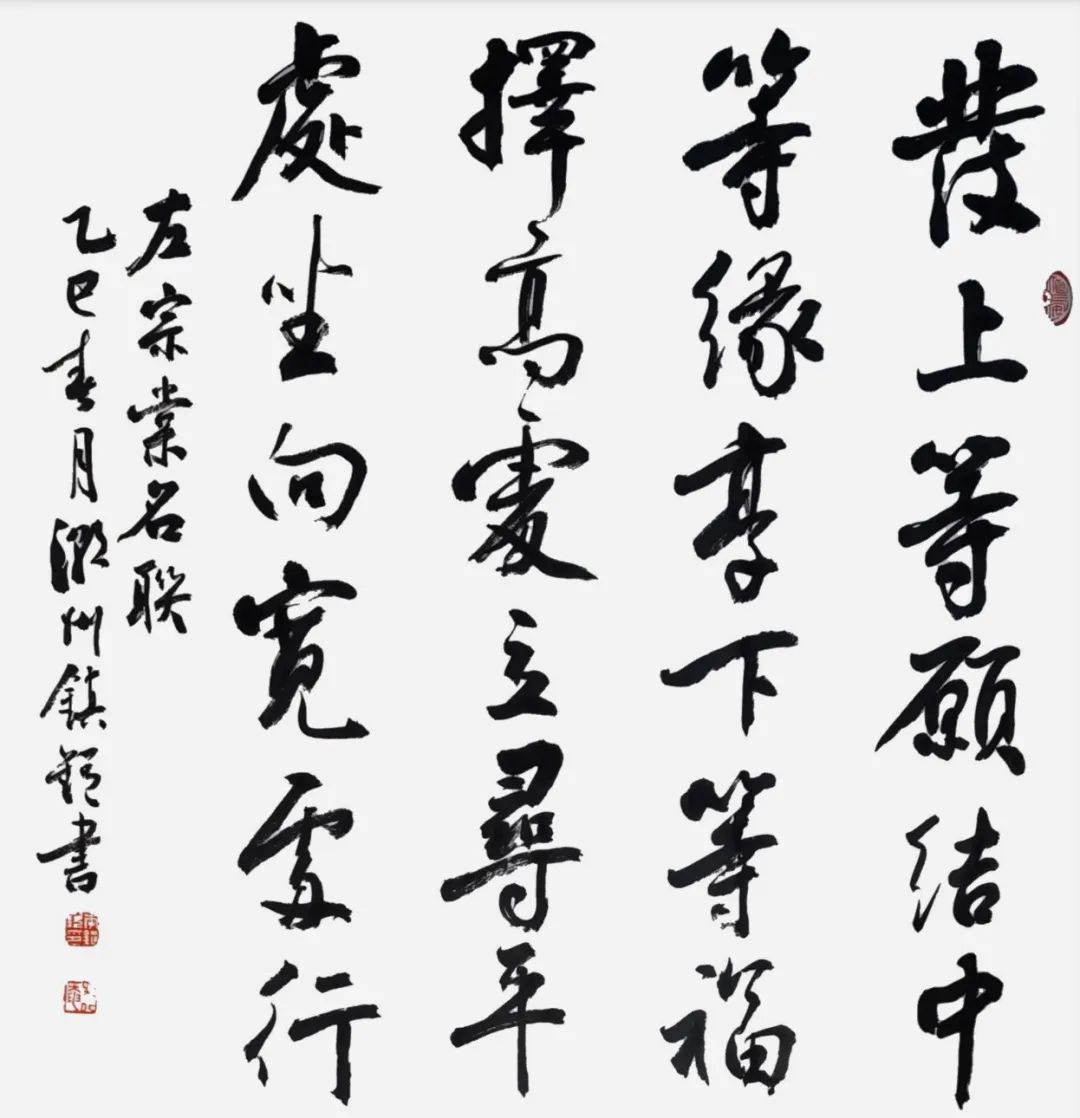 發上等願結中
等緣享下等福
擇高處立尋平
處坐向寬處行
左宗棠名聯
乙巳春月潮州鎮書